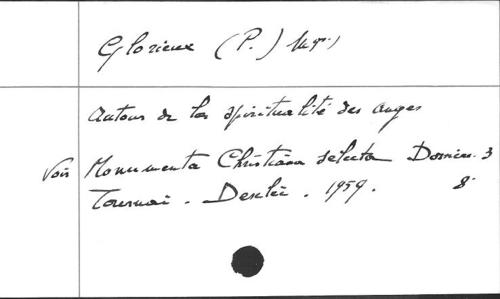 Glorieux (P.) Mgr.)
Autour de la spiritualité des anges
Voir Monumenta Christiana selecta Dossiers. 3
Tournai. Desclée. 1959. 8°